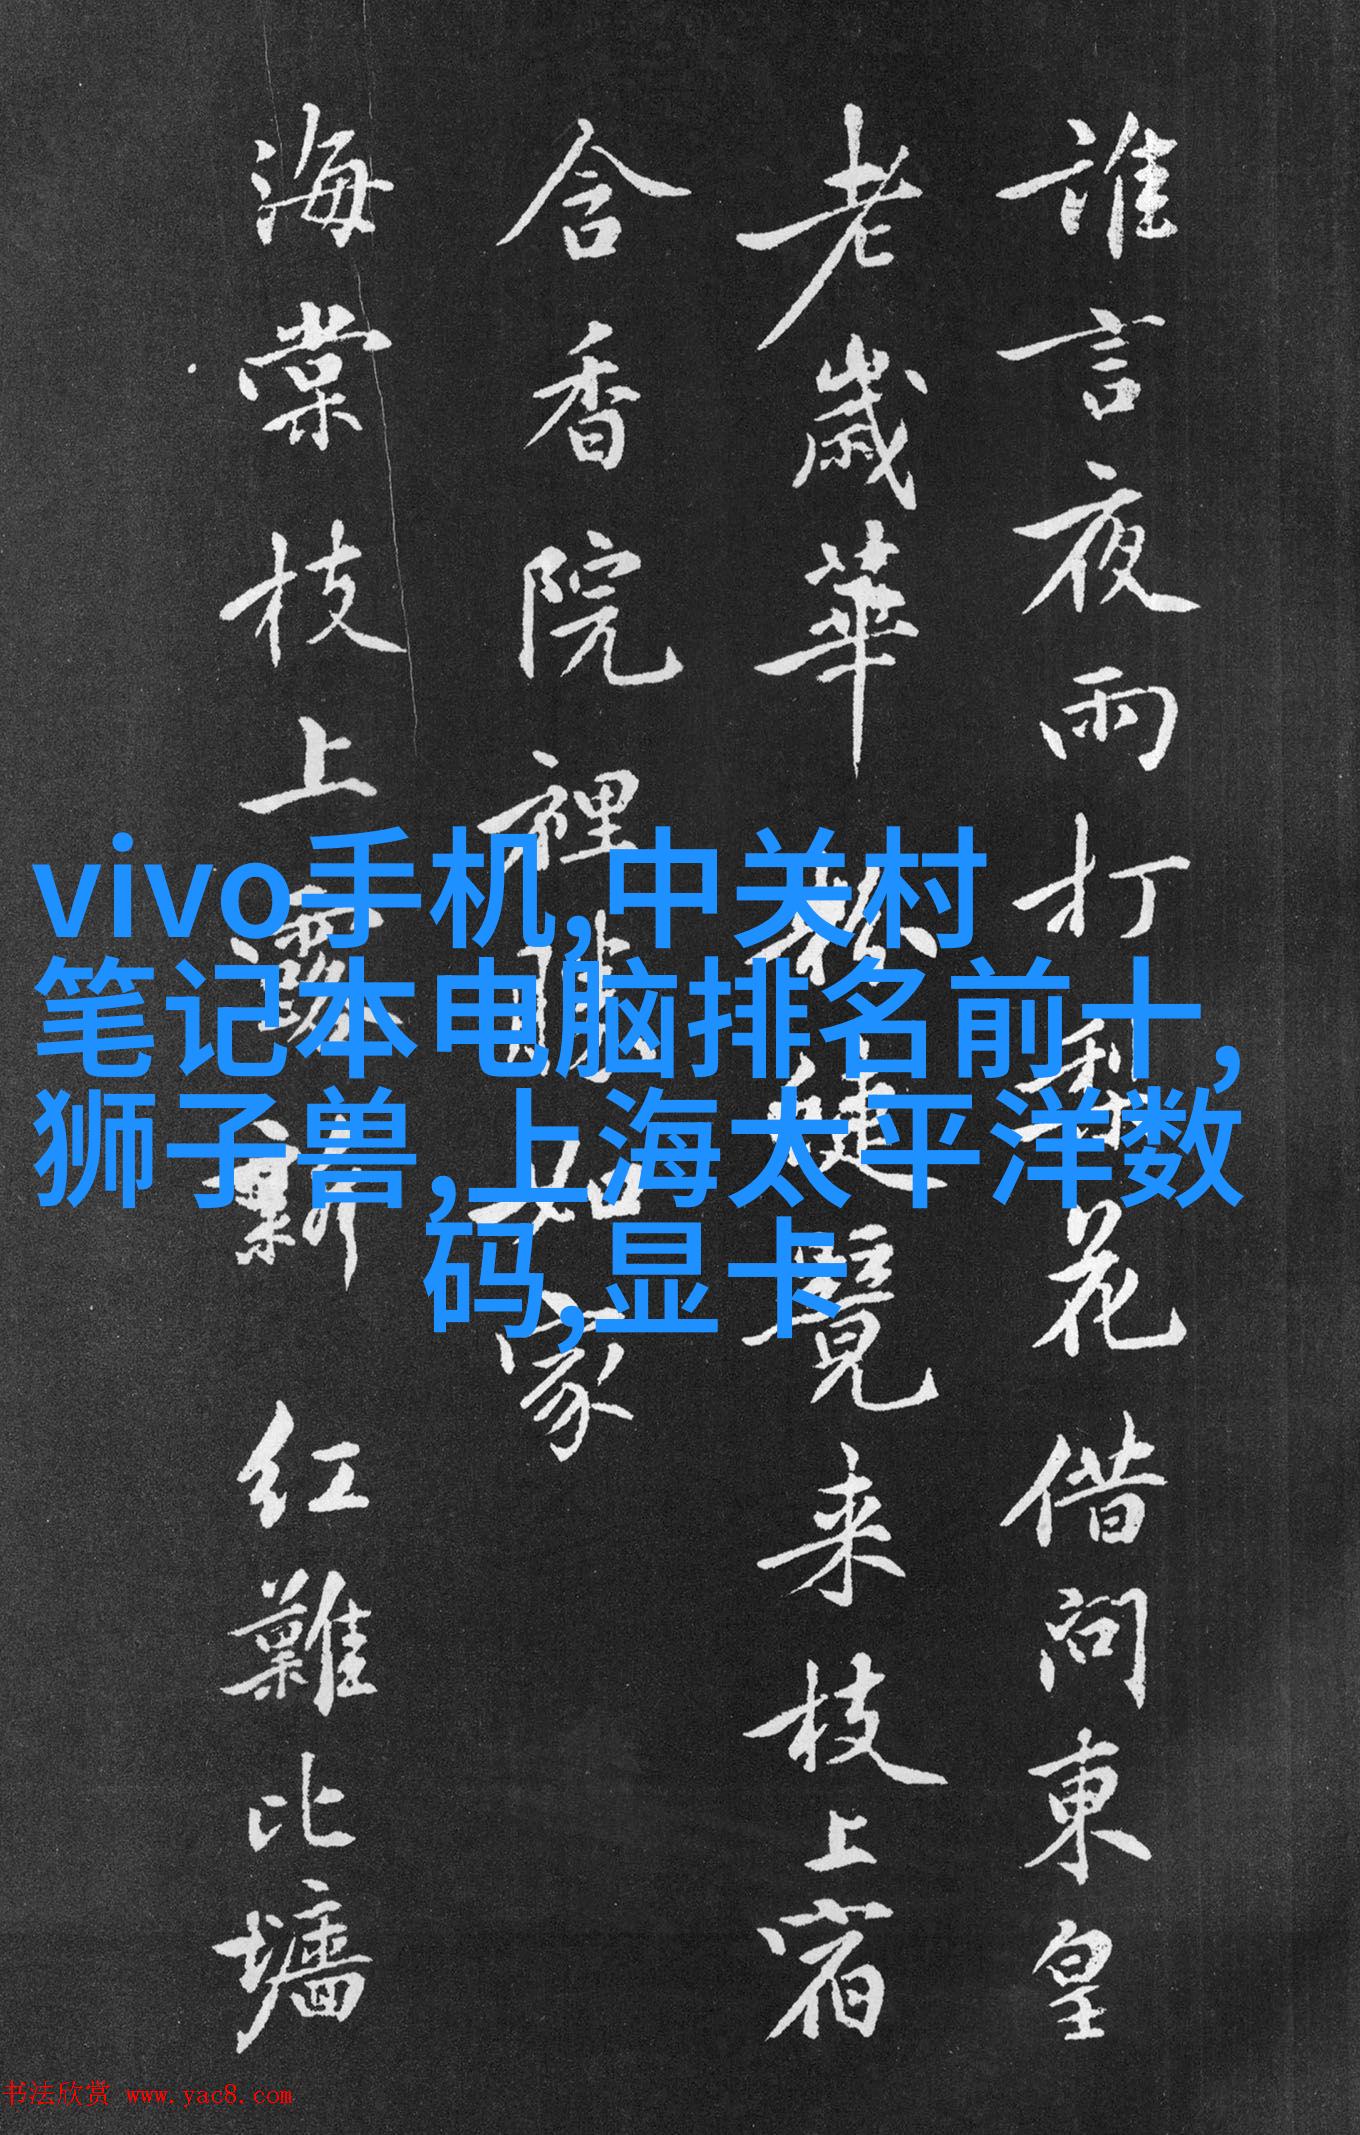 誰言夜雨打梨花借問東皇
老歲華
覓来枝上宿
含香院裡
如家
海棠枝上露新紅難比墙
vivo手机,中关村
笔记本电脑排名前十,
狮子兽,上海太平洋数
码,显卡
书法欣赏 www.yac8.com